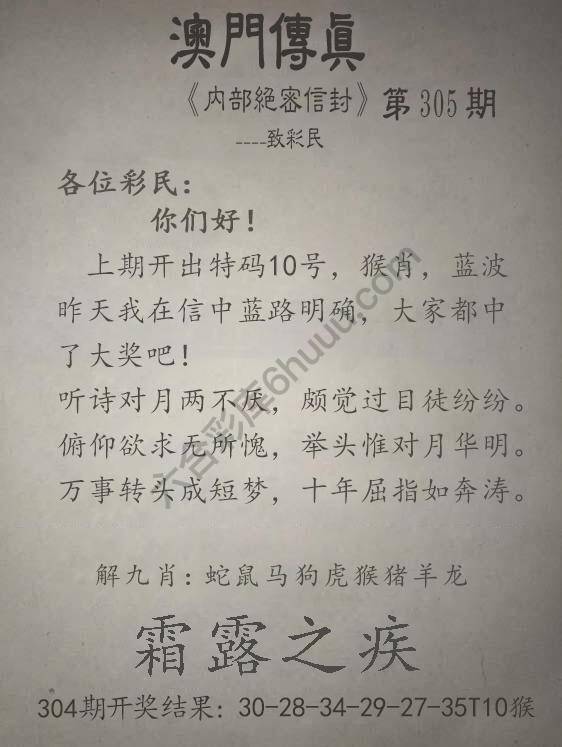 澳門傳眞
《内部絕密信封》第305期
----致彩民
各位彩民：
你们好！
上期开出特码10号，猴肖，蓝波
昨天我在信中蓝路明确，大家都中
了大奖吧！
听诗对月两不厌，颇觉过目徒纷纷。
俯仰欲求无所愧，举头惟对月华明。
万事转头成短梦，十年屈指如奔涛。
解九肖：蛇鼠马狗虎猴猪羊龙
霜露之疾
304期开奖结果：30-28-34-29-27-35T10猴
六合彩库6huuu.com